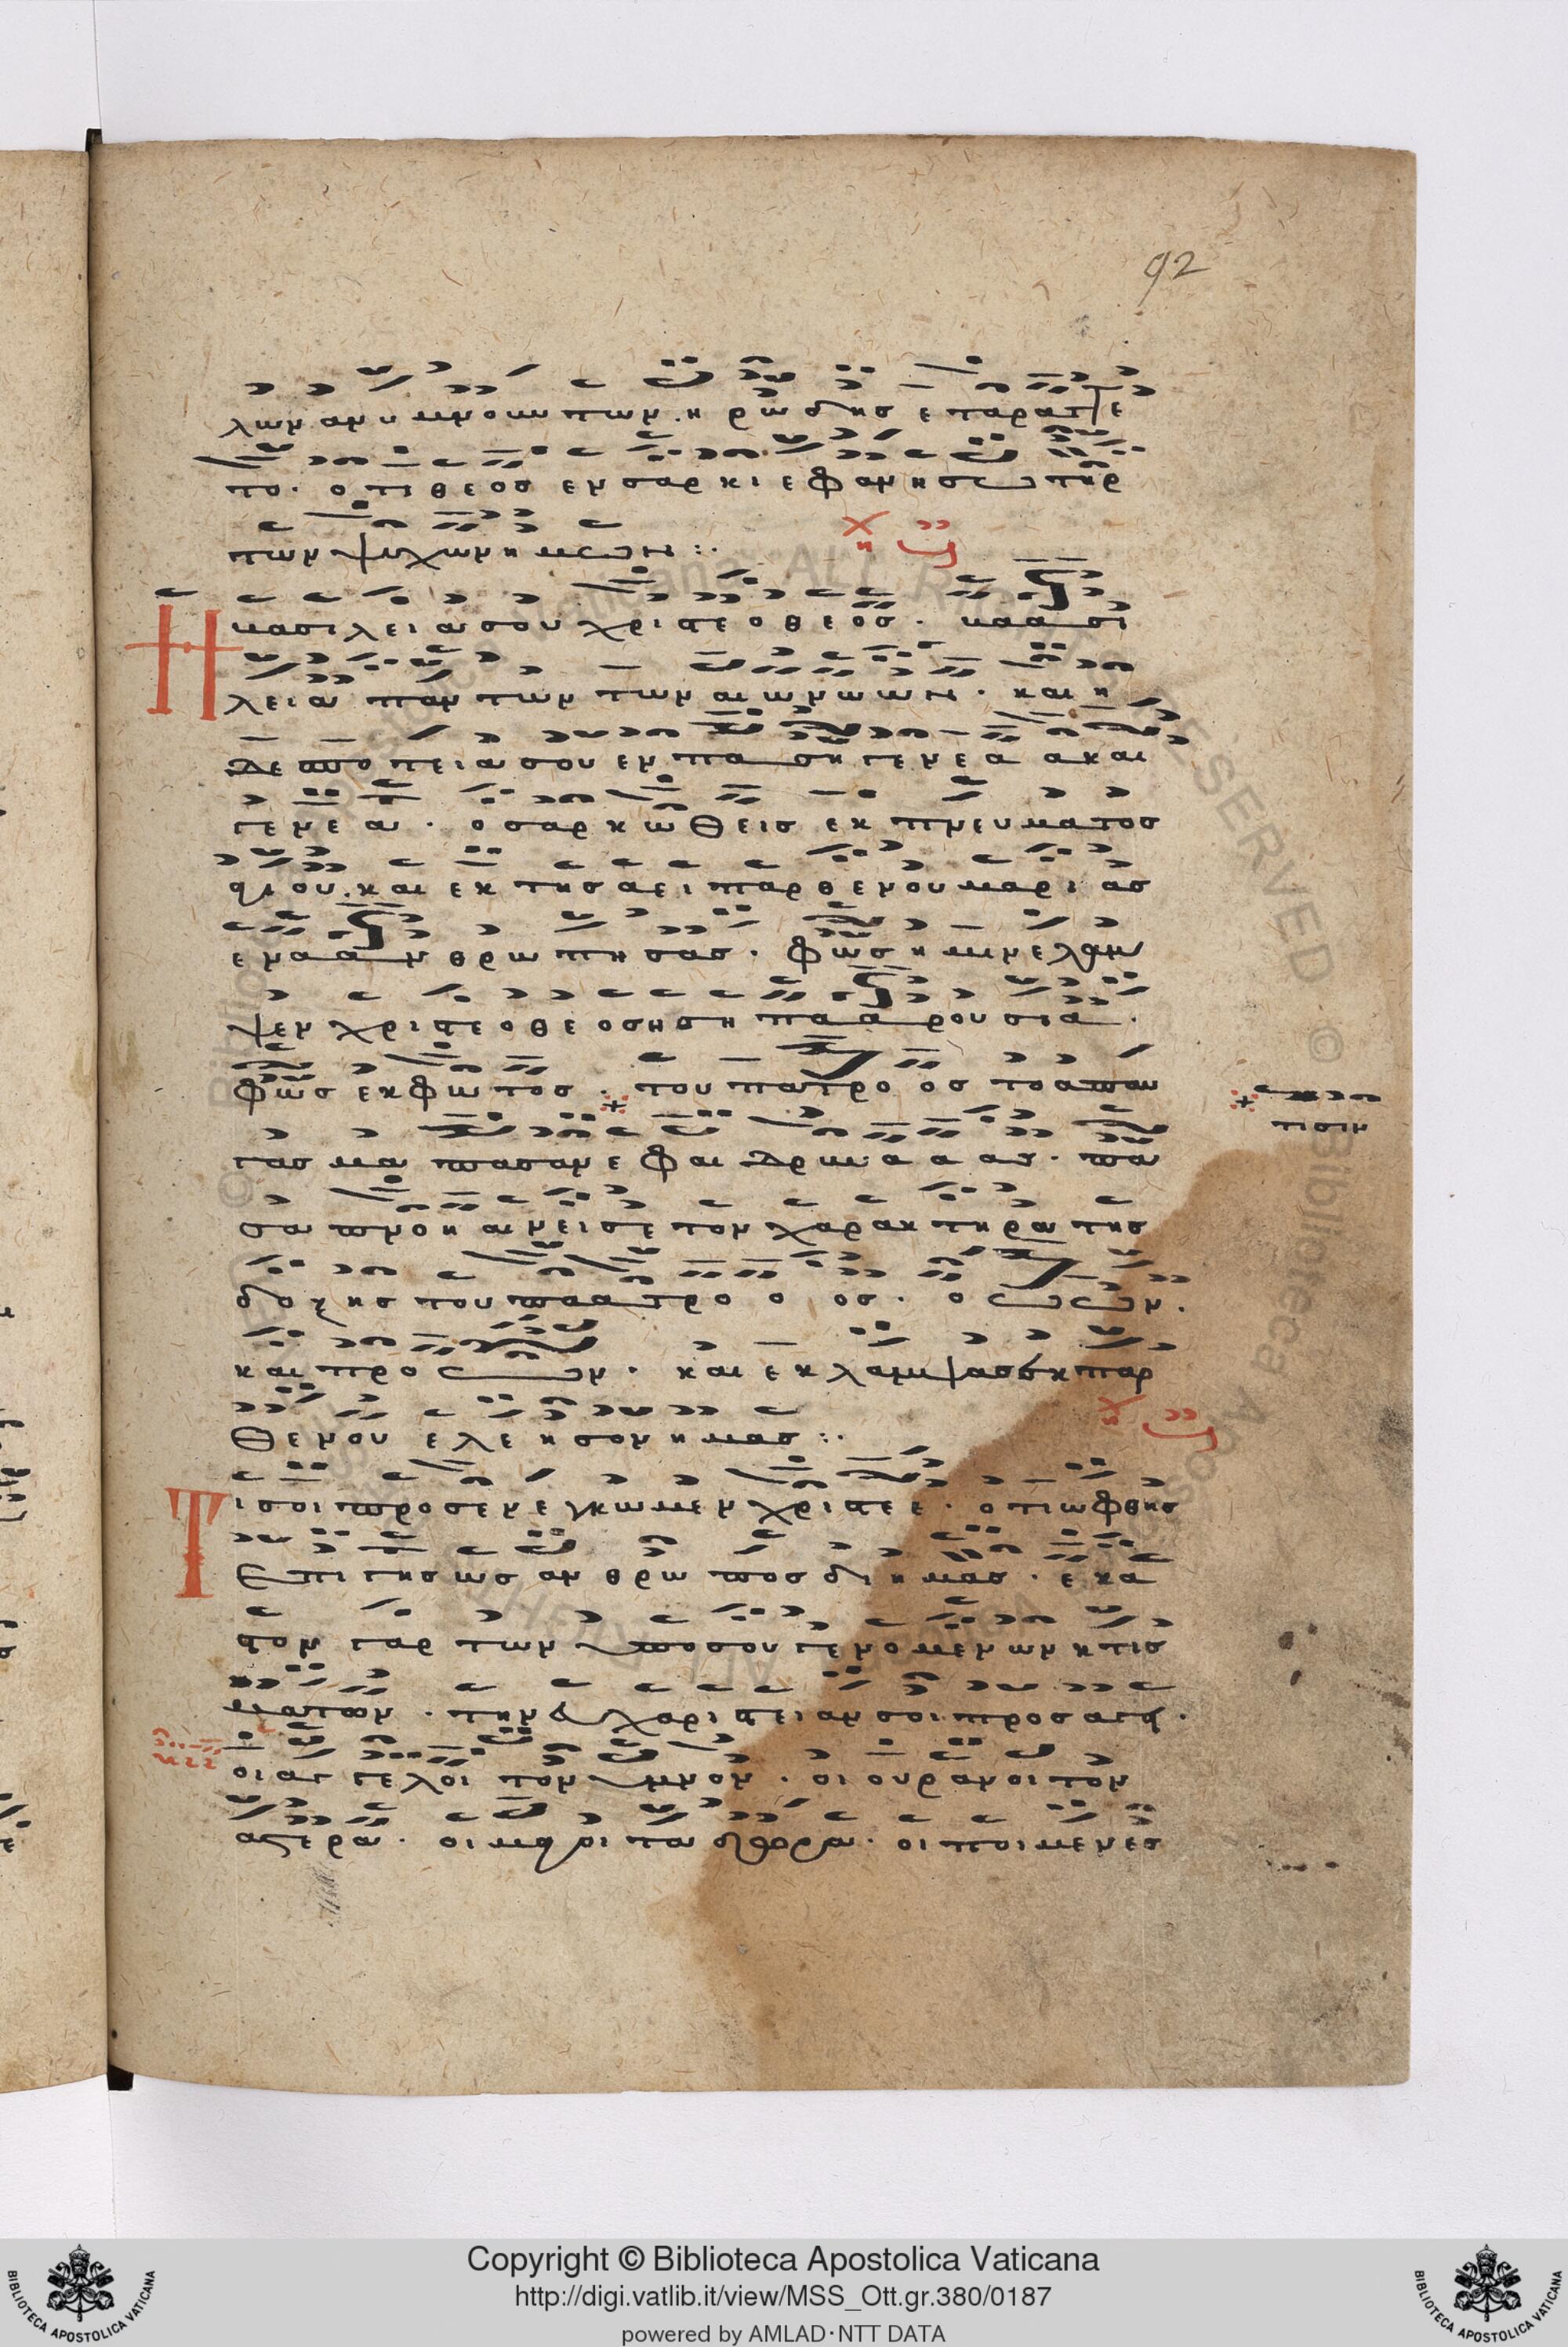 92
λων ανυμνουντων. η ρωδης εταρατ ε
το. οτι θεος εν σαρκι εφανη σωτηρ
των ψυχων ημων :.
Η βασιλεια σου χριστε ο θεος. βαασι
λεια παντων των αιωνωων. και η
δεσποτεια σου εν παση γενεα α και
γενεα. ο σαρκωθεις εκ πνευματος
αγιου. και εκ της αειπαρθενου μαριας
εναανθρωπησας. φως ημιν ελαμ
ψεν χριστε ο θεος η ση πααρουσια.
φως εκ φωτος. του πατροος το απαυ
τισιν
γασμα πασαν εφαιδρυνααας. πα
σα πνοη αινει σε τον χαρακτηρα της
δοξης του παατροοος. ο ωων.
και προων. και εκλαμψας εκ παρ
θενου ελεησον ημας :.
Τι σοι προσενεγκωμεν χριστεε. οτι ωφθης
επι γης ως ανθρωπος δι ημας. εκα
στον γαρ των υπο σου γενομενων κτισ
ματων. την ευχαριστειαν σοι προσαγει.
οι αγγελοι τον υμνον. οι ουρανοι τον
αστερα. οι μαγοι τα δωρα. οι ποιμενες
Copyright © Biblioteca Apostolica Vaticana
http://digi.vatlib.it/view/MSS_Ott.gr.380/0187
powered by AMLAD·NTT DATA
BIBLIOTECA APOSTOLICA VATICANA
BIBLIOTECA APOSTOLICA VATICANA